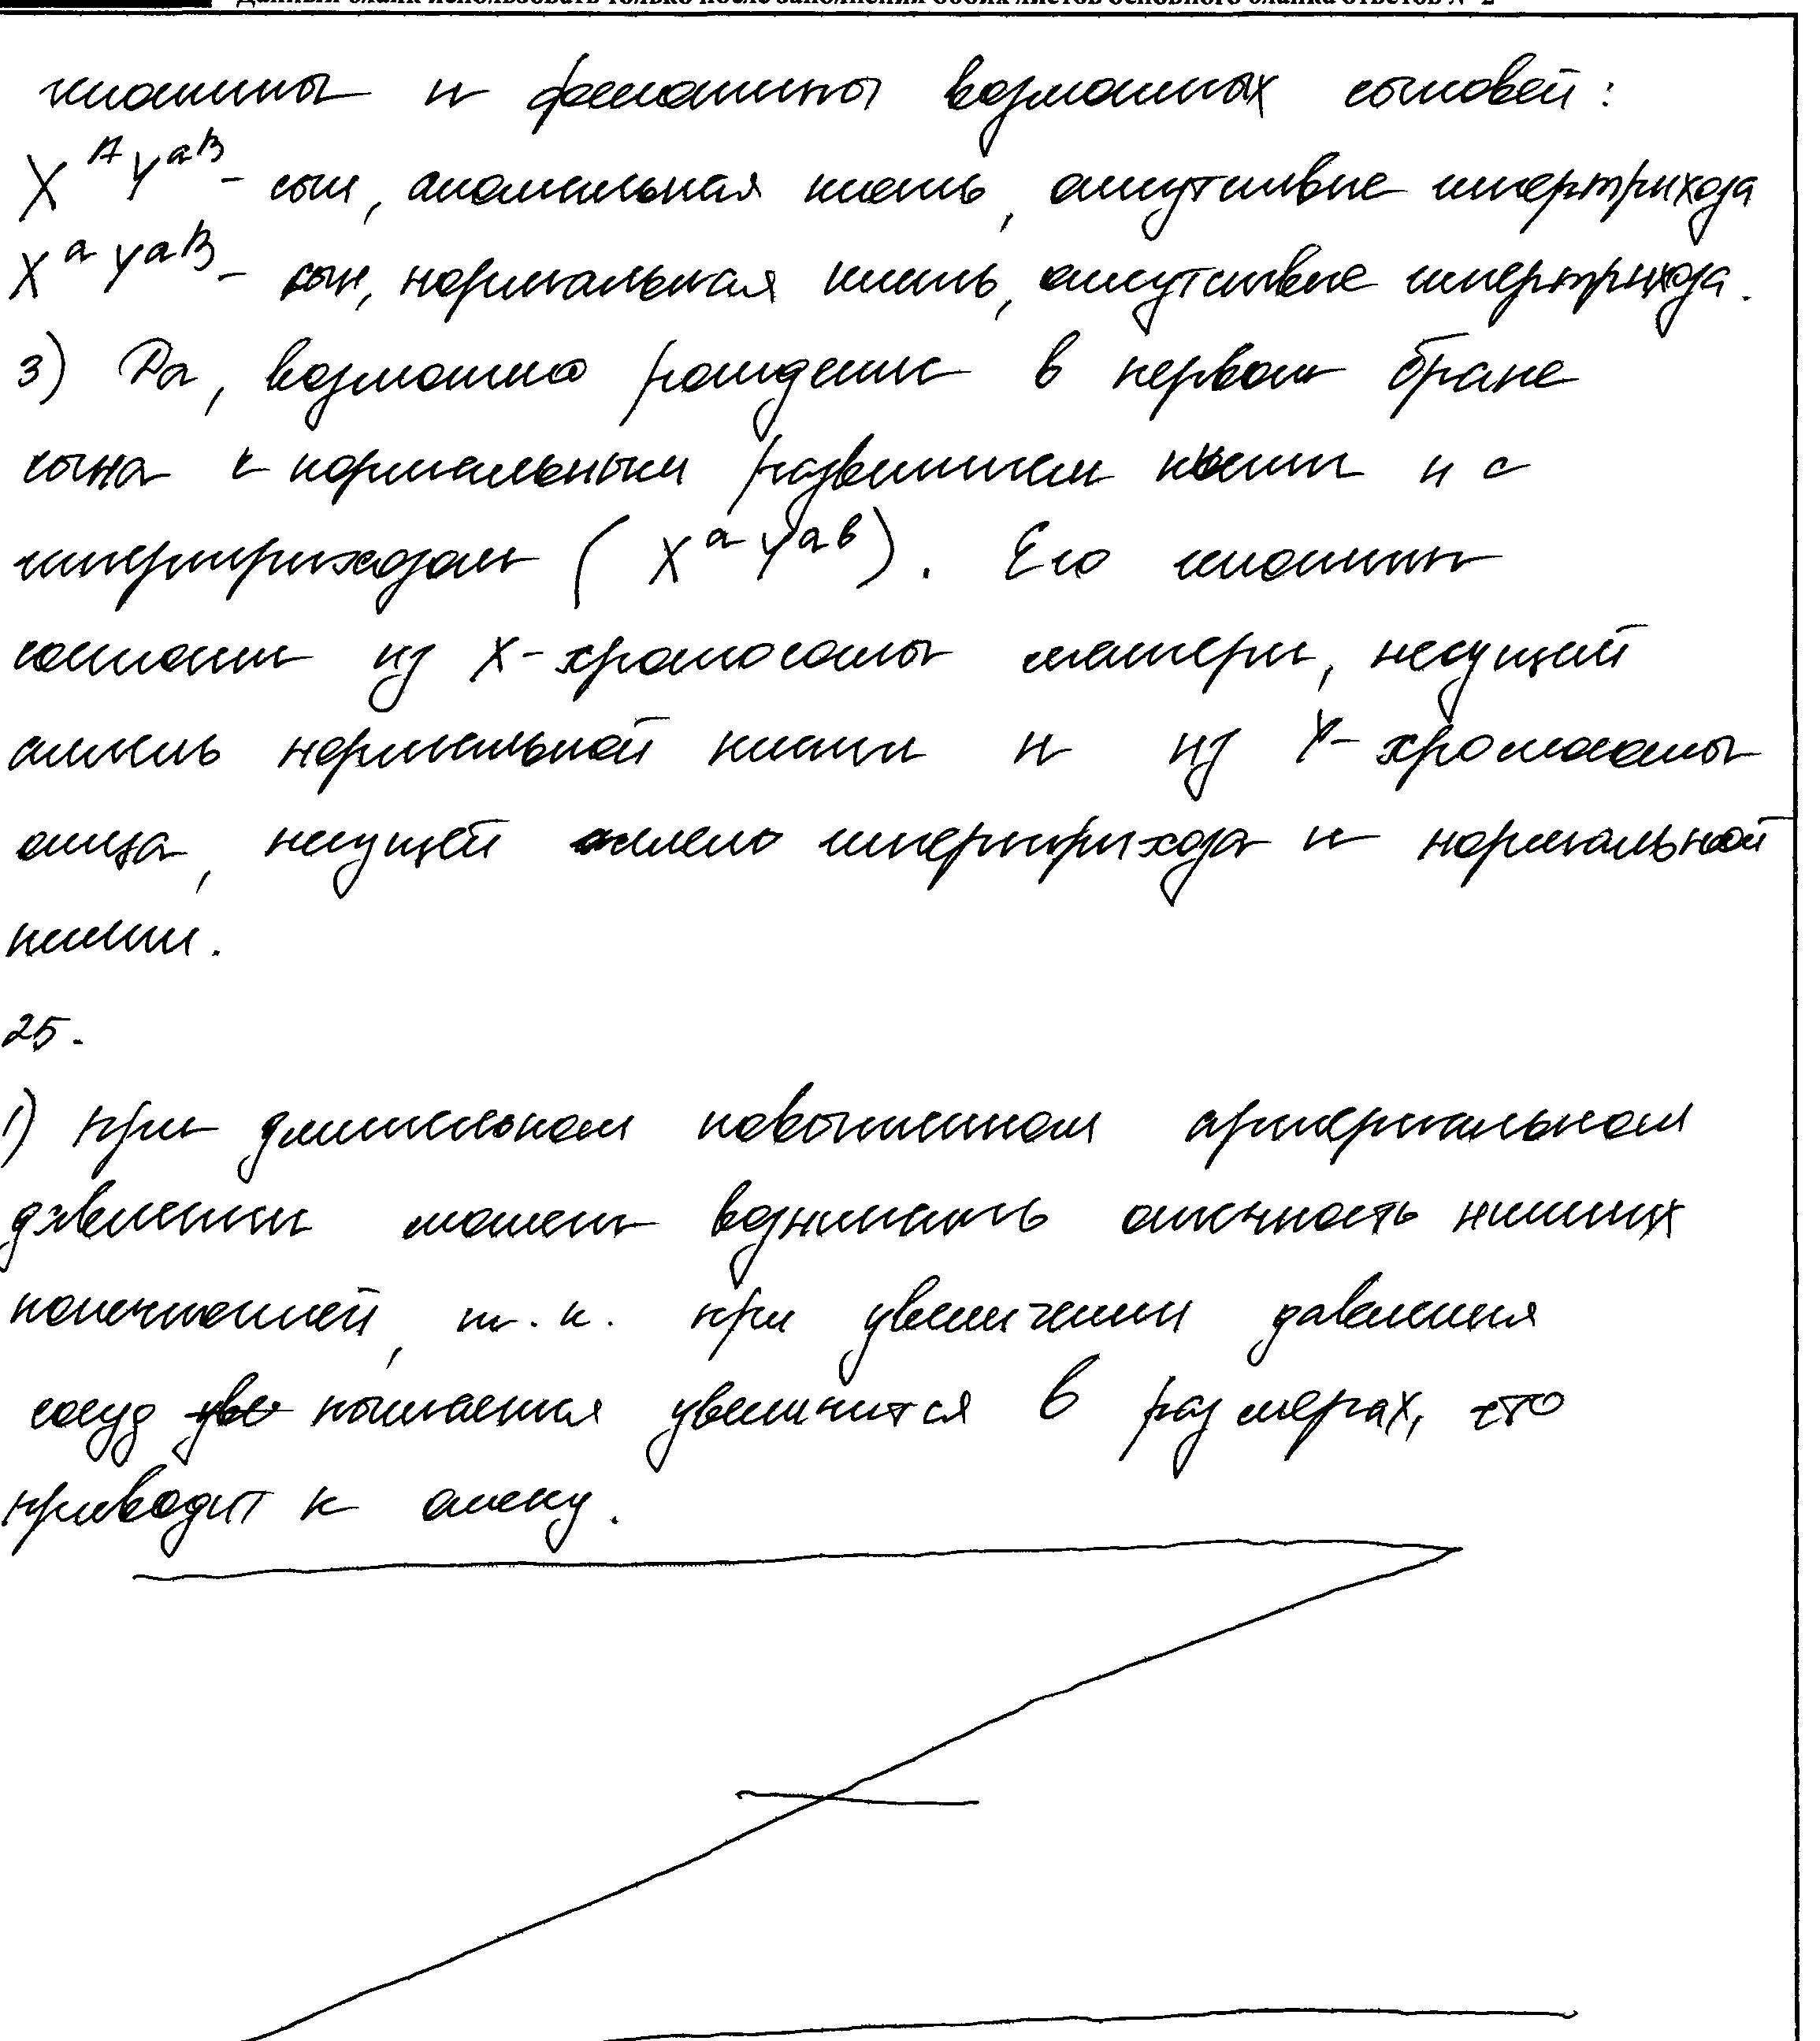 Данный бланк использовать только после заполнения обоих листов основного бланка ответов № 2
генотипы и фенотипы возможных сыновей:
X^A Y^aB - сын, аномальная кисть, отсутствие гипертрихоза
X^a Y^aB - сын, нормальная кисть, отсутствие гипертрихоза.
3) Да, возможно рождение в первом браке
сына с нормальным развитием кисти и с
гипертрихозом (X^a Y^ab). Его генотип
состоит из X-хромосомы матери, несущей
аллель нормальной кисти и из Y-хромосомы
отца, несущей аллель гипертрихоза и нормальной
кисти.
25.
1) При длительном повышенном артериальном
давлении может возникать отечность нижних
конечностей, т.к. при увеличении давления
сосуд уве пытается увеличится в размерах, что
приводит к отеку.